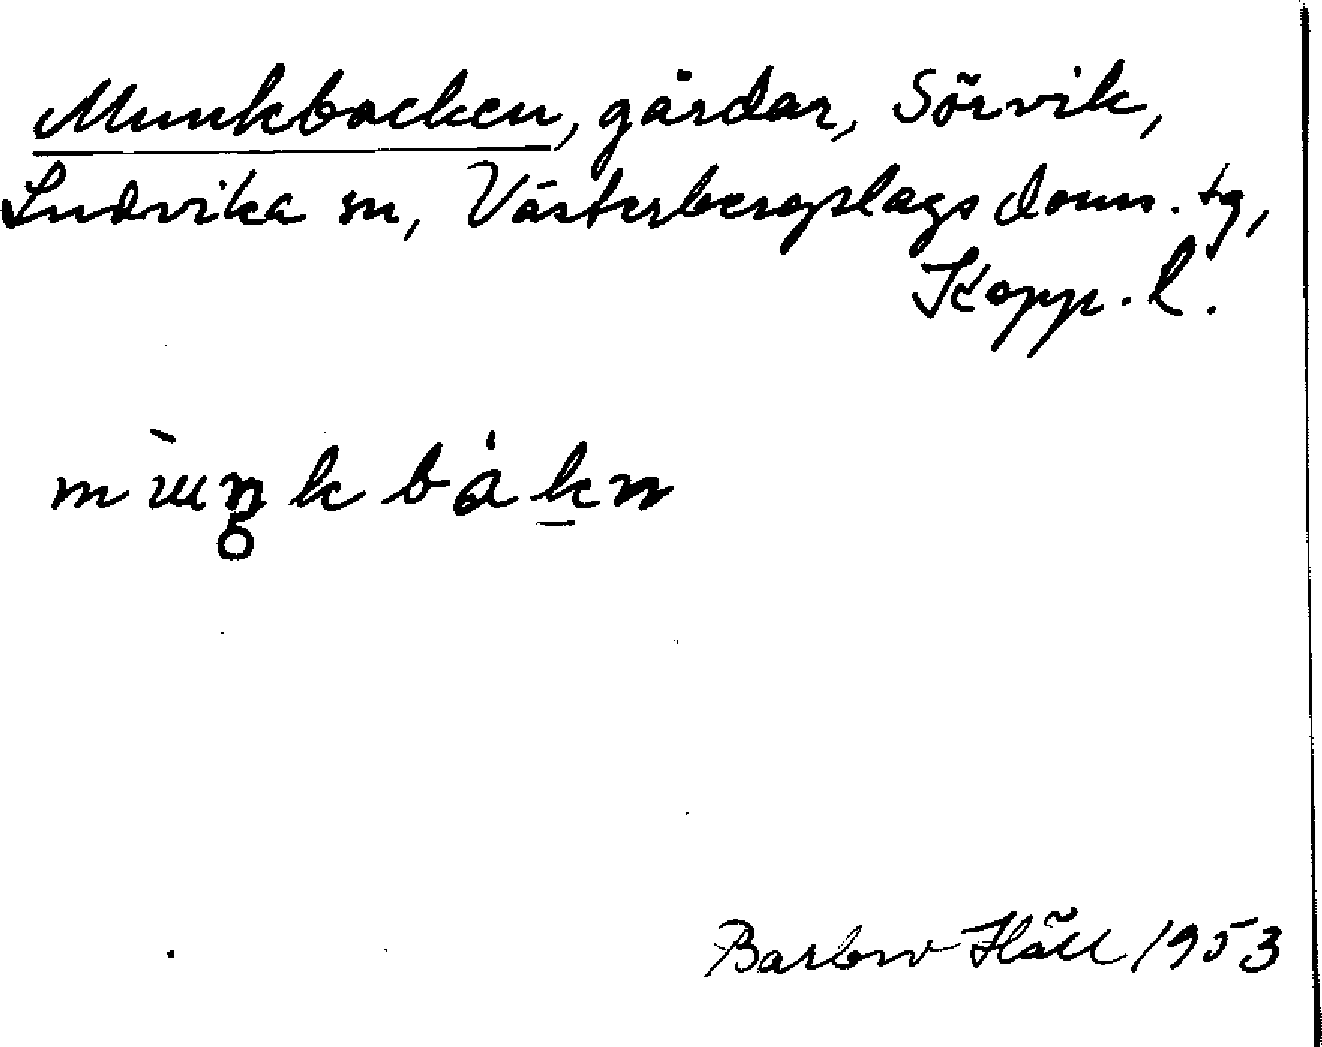 Munkbacken, gårdar, Sörvik,
Ludvika sn, Västerbergslags doms. tg,
Kopp. l.
mùŋk bákn
Barbro Häll 1953